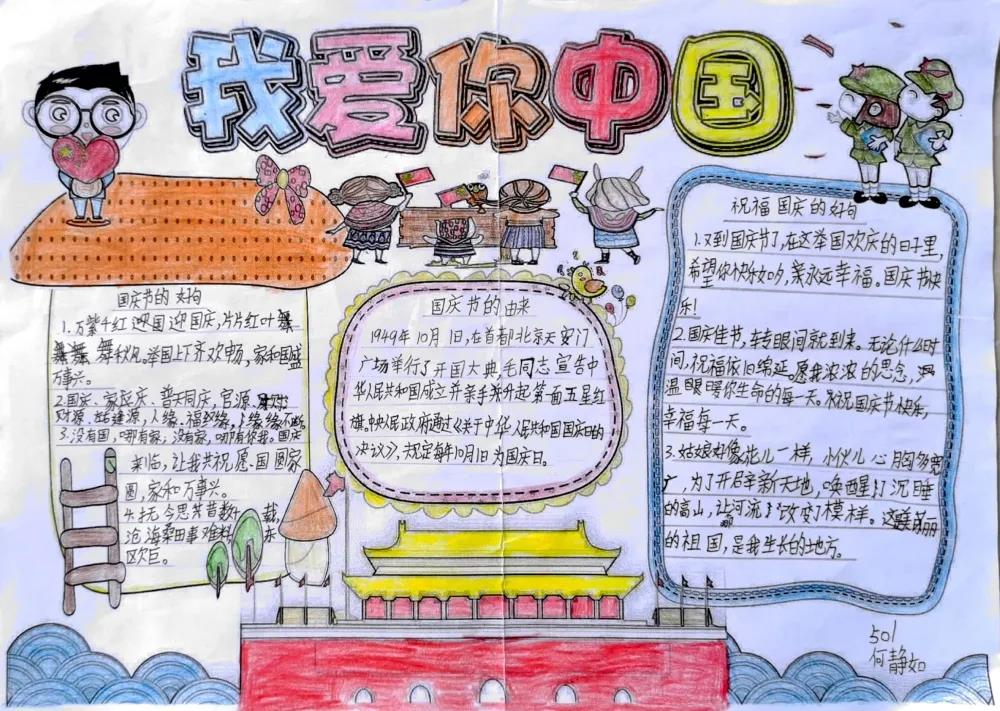 我爱你中国
国庆节的好句
1.万紫千红迎国迎国庆,片片红叶
舞秋风。举国上下齐欢畅,家和国盛
万事兴。
2.国庆、家庭庆、普天同庆,官源、
财源、人缘、福缘、缘缘不断。
3.没有国,哪有家,没有家,哪有你我。国庆
来临,让我共祝愿国圆家
圆,家和万事兴。
4.抚今思昔数十载,
沧海桑田事难料
区欠巨。
国庆节的由来
1949年10月1日,在首都北京天安门
广场举行了开国大典,毛同志宣告中
华人民共和国成立并亲手升起第面五星红
旗,中央人民政府通过《关于中华人民共和国国庆日的
决议》,规定每年10月1日为国庆日。
祝福国庆的好句
1.又到国庆节了,在这举国欢庆的日子里,
希望你快乐如,永远幸福。国庆节快
乐!
2.国庆佳节,转眼间就到来。无论什么时
间,祝福依旧绵延。愿我浓浓的思念,
温暖你生命的每一天。祝国庆节快乐,
幸福每一天。
3.姑娘好像花儿一样,小伙儿心胸多宽
广,为了开辟新天地,唤醒了沉睡
的高山,让河流改变了模样。这美丽
的祖国,是我生长的地方。
501
何静如